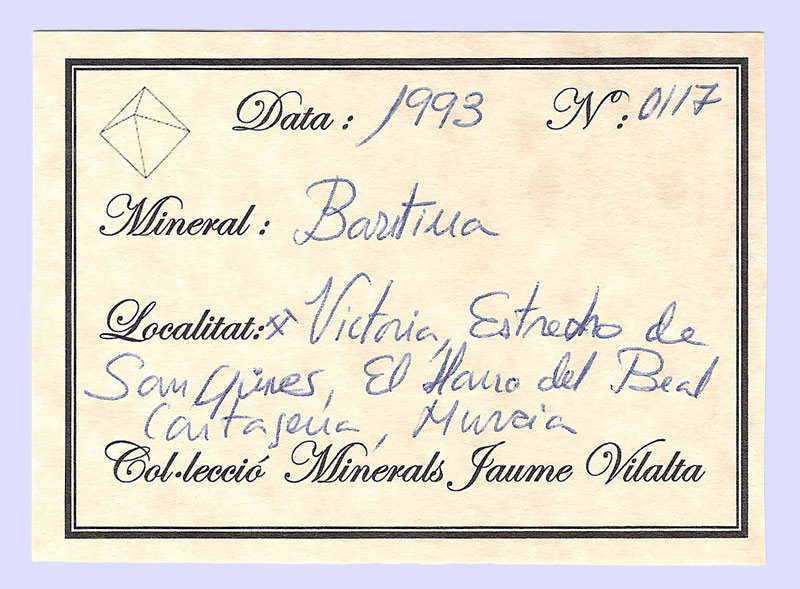 Data: 1993 Nº: 0117
Mineral: Baritina
Localitat: ⚒ Victoria, Estrecho de
San Gines, El Llano del Beal
Cartagena, Murcia
Col·lecció Minerals Jaume Vilalta